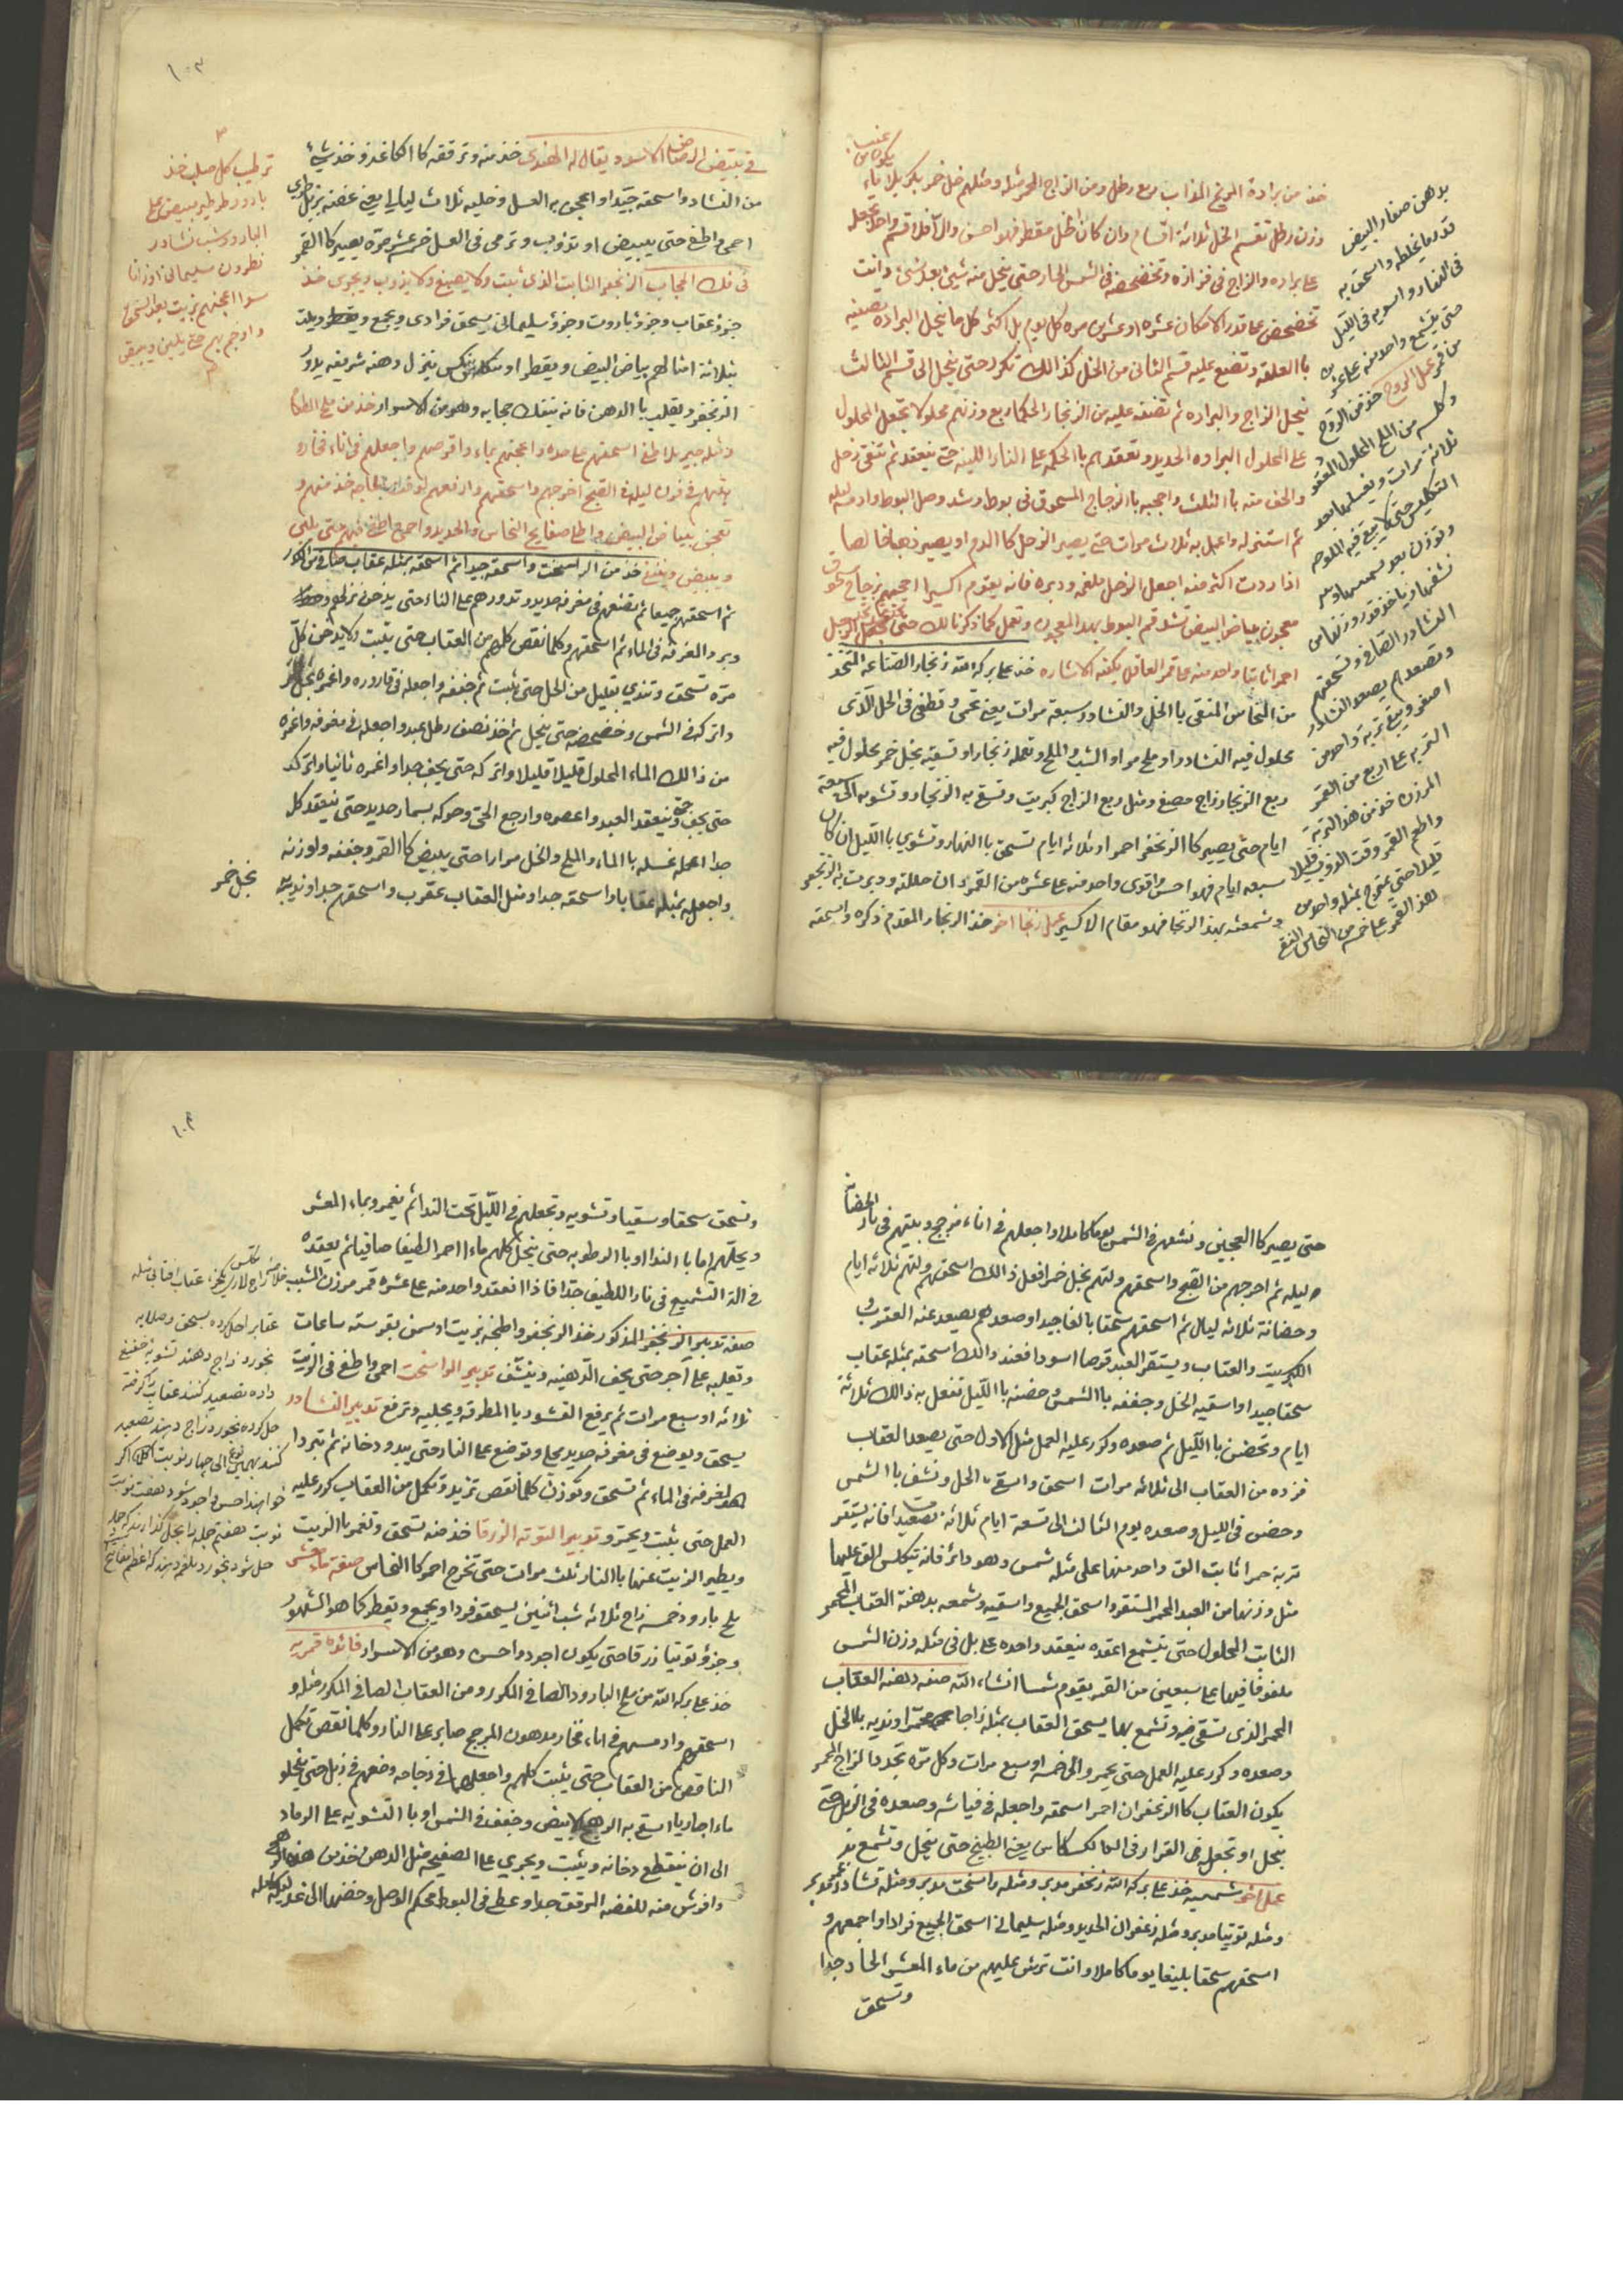 خذ من برادة المريخ المذاب ربع رطل ومن الزاج المحمر مثله ومثلهم خل خمر بكر بلا ماء
وزن رطل تقسم الخل ثلاثة اقسام وان كان الخل مقطر فهو احسن والا فلا قسم واحد تجعل
على براده والزاج في قزازه وتخضخضه في الشمس الحار حتى ينحل منه شيئ بعد شئ وانت
تخضخض على قدر الامكان عشره او عشرين مره كل يوم بل اكثر كل ما ينحل البراده تصفيه
با العلقه وتضع عليه قسم الثاني من الخل كذالك تكرر حتى ينحل الى قسم الثالث
ينحل الزاج والبراده ثم تضف عليه من الزنجار الحكما ربع وزنهم محلولا تجعل المحلول
على المحلول البراده الحديد وتعقدهم با الحكمه على النار اللينه حتى ينعقد ثم تنقى زحل
والحف منه با الثلث واحجبه با الزجاج المسحوق في بوط وشد وصل البوط وادمسه ليله
ثم استنزله واعمل به ثلاث مرات حتى يصير الزحل كا الدم او يصير ذهبا خالصا
اذا ردت اكثر منه اجعل الزحل ملغمه ودبره فانه يقوم اكسيرا احجبه بزجاج مسحوق
معجون ببياض البيض تشد فم البوط بهذ المعجون وتعمل كما ذكرنا لك حتى الزحل
احمرا ثابتا واحد منه على قمر العاقل يكفيه الاشاره خذ على بركة الله زنجار الصناعه المتخذ
من النحاس المنقى با الخل والنشادر سبعة مرات يعني تحمى وتطفى في الخل الذى
محلول فيه النشادر او ملح مر او الشب والملح وتعمله زنجار او تسقيه بخل خمر محلول فيه
ربع الزنجار زاج مصفى ومثل ربع الزاج كبريت وتسقي به الزنجار وتشويه الى سبعة
ايام حتى يصير كا الزنجفر احمر او ثلاثه ايام تسحق با النهار وتشوي با الليل ان كان
سبعه ايام فهو احسن واقوى واحد منه على عشره من القمر وان حللته ودبرت به الزنجفر
وشمعته بهذ الزنجار فهو مقام الاكسير عمل زنجار اخر خذ الزنجار المقدم ذكره واسحقه
بدهن صفار البيض
قدر ما يخلطه واسحق به
في النهار واشويه في الليل
حتى يتشمع واحد منه على عشره
من قمر عمل الروح خذ من الروح
وكلسه من الملح المحلول المعقود
ثلاثة مرات وتغسلها بعد
التكليس حتى لا يبقى فيه الملوحه
النشادر الصافي وتسحقهم
وتصعدهم يصعد النشادر
اصفر ويبقى تربة واحد من
التربه على اربع من القمر
المرزن خذ من هذ التربة
واطعم القمر وقت الذوب قليلا
قليلا حتى يمتزج بمثله واحد من
هذ القمر على خمسه من النحاس النقي
١٠٣
في تبييض الرصاص الاسود يقال له الهندى خذ منه وترققه كا الكاغد وخذ شيئ
من النشادر واسحقه جيدا واعجن به العسل وخليه ثلاث ليالي يعني عفنه بزبل طرى
احمي واطفئ حتى يبيض او تذويب وترمى في العسل خمسة عشر مرة يصير كا القمر
في فك الحجاب الزنجفر الثابت الذى ثبت ولا يصبغ ولا يذوب ويجرى خذ
جزؤ عقاب وجزؤ بارود وجزؤ سليمانى يسحق فرادى ويجمع ويلت
بثلاثة امثالهم بياض البيض ويقطر او تنكيس ينزل دهنه شريفه يدور
الزنجفر ويقلب با الدهن فانه ينفك حجابه وهو من الاسرار خذ من ملح الطعام
ومثله جير بلا طفئ اسحقهم على حده واعجنهم بماء واقرصهم واجعلهم في اناء فخاره
بيتهم في فرن ليله الصبح اخرجهم واسحقهم وارفعهم لوقت الحاجه خذ منهم و
تعجن ببياض البيض واطلي صفايح النحاس والحديد واحمي واطفئ فيهم حتى يلين
ويبيض وينقي خذ من الراسخت واسحقه جيدا ثم اسحقه بمثله عقاب صافي مكرر
ثم اسحقهم جميعا ثم تضعهم في مغرفه حديد وتدورهم على النار حتى يدخن
وبرد المغرفه في الماء ثم اسحقهم وكلما نقص كمله من العقاب حتى يثبت ولا يدخن كل
مرة تسحق وتندي بقليل من الخل حتى يثبت ثم جففه واجعله في قاروره واغمره بخل
واتركه في الشمس وخضخضه حتى ينحل ثم اخذ نصف رطل عبد واجعله في مغرفه واغمره
من ذالك الماء المحلول قليلا قليلا واتركه حتى يجف جدا واغمره ثانيا واتركه
حتى يجف حتى ينعقد العبد واعصره وارجع الحي وحركه بمسمار حديد حتى ينعقد كل
جدا اعمله غسله با الماء والملح والخل مرارا حتى يبيض كا القمر وجففه واوزنه
واجعل بمثله عقابا واسحقه جدا ومثل العقاب عقرب واسحقهم جدا ونديه
بخل خمر
ترطيب كل صلب خذ
بارود طرطير مبيض ملح
البارود شب نشادر
نطرون سليمانى اوزانا
سوا اعجنهم بزيت بعد السحق
وارجم بهم حتى يلين ويبقى
حتى يصير كا العجين ونشفهم في الشمس يوما كاملا واجعلهم في اناء مزجج وبيتهم في نار الحضانه
ليله ثم اخرجهم من الصبح واسحقهم ولتهم بخل خمر افعل ذالك اسحقهم ولتهم ثلاثة ايام
وحضانة ثلاثه ليال ثم اسحقهم سحقا بالغا جيدا وصعدهم يصعد عنه العقرب و
الكبريت والعقاب ويستقر العبد قرصا اسودا فعند ذالك اسحقه بمثله عقاب
سحقا جيدا واسقيه الخل وجففه با الشمس وحضنه با الليل تفعل به ذالك ثلاثة
ايام وتحضن با الليل ثم صعده وكرر عليه العمل مثل الاول حتى يصعد العقاب
فزده من العقاب الى ثلاثه مرات اسحق واسقي الخل ونشف با الشمس
وحضن في الليل وصعده يوم الثالث الى تسعة ايام ثلاثة تصعيدات فانه يستقر
تربة حمرا ثابت الق واحد منها على مثله شمس وهو دائر فانه يتكلس الق عليها
مثل وزنها من العبد المحمر المستقر واسحق الجميع واسقيه وشمعه بدهنة العقاب المحمر
الثابت المحلول حتى يتشمع اعقده ينعقد واحده على بل في مثله وزن الشمس
ملغوفا فيها على سبعين من القمر يقوم شمسا انشاء الله صفة دهنة العقاب
المحمر الذى تسقي فيه وتشمع بها يسحق العقاب بمثله زاجا محمرا ونديه بالخل
وصعده وكرر عليه العمل حتى يحمر والى خمسه او سبع مرات وكل مرة تجدد الزاج المحمر
يكون العقاب كا الزعفران احمر اسحقه واجعله في فياشه وصعده في الزبل حتى
ينحل او تجعل في القرار في الكسكاس يعني الطبيخ حتى ينحل وتشمع به
عمل اخر شمسيه خذ على بركة الله زنجفر مدبر ومثله راسخت مدبر ومثله نشادر مدبر
ومثله توتيا مدبر ومثله زعفران الحديد ومثله سليمانى اسحق الجميع فرادا واجمعهم و
اسحقهم سحقا بليغا يوما كاملا وانت ترش عليهم من ماء المعشر الحاد جدا
وتسحق
١٠٤
وتسحق سحقا وسقيا وتشويه وتجعلهم في الليل تحت الندا ثم يغمر وبماء المعشر
ويحلهم اما با الندا او با الرطوبه حتى ينحل كلهم ماءا احمر الطيفا صافيا ثم يعقده
في الة التشميع في نار اللطيف جدا فاذا انعقد واحد منه على عشره قمر مرزن
صفة تدبير الزنجفر المذكور خذ الزنجفر واطبخه بزيت او سمن بقر سته ساعات
وتعليه على آجر حتى يجف الدهنيه وينشف تدبير الراسخت احمي واطفئ في الزيت
ثلاثه او سبع مرات ثم يرفع القشور با المطرقه ويجليه وترفع تدبير النشادر
يسحق ويوضع في مغرفه حديد وتوضع على النار حتى يبدو دخانه ثم تبردا
لمغرفه في الماء ثم تسحق وتوزن كلما نقص تزيد وتكمل من العقاب كرر عليه
العمل حتى يثبت ويحمر و تدبير التوتة الزرقا خذ منه تسحق وتغمر با الزيت
ويطير الزيت عنها با النار ثلث مرات حتى تخرج احمر كا النحاس صفة ماء معشر
ملح بارود خمسه زاج ثلاثه شب اثنين يسحق فردا ويجمع ويقطر كما هو المشهور
وجزؤ توتيا زرقا حتى يكون اجود واحسن وهو من الاسرار فائدة قمريه
خذ على بركة الله من ملح البارود الصافي المكرر ومن العقاب الصافي المكرر مثله و
اسحقهم وادمسهم في اناء فخار مدهون المزجج صابر على النار وكلما نقص تكمل
الناقص من العقاب حتى يثبت كلهم واجعلها في زجاجه وضعهم في زبل حتى ينحلو
ماءا جاريا اسقي به الرهج الابيض وجفف في الشمس او با التشويه على الرماد
الى ان ينقطع دخانه ويثبت ويجري على الصفيحه مثل الدهن خذ من هذا
وافرش منه للفضه المرققه جدا وغطي في البوط محكم الوصل وحضنها الى غد
عقاب را حل كرده بسحق وصلايه
بخورد زاج دهند تشويه خفيف
داده تصعيد كنند عقاب را گرفته
حل كرده بخورد زاج دهند تصعيد
كنند بهمين نوع الى چهار نوبت اگر
خواهند احسن واجود شود هفت نوبت
نوبت هفتم جمله را بحل گذارند كه جمله
حل شود بخورد ملغم دهند كه اعظم مفاتيح